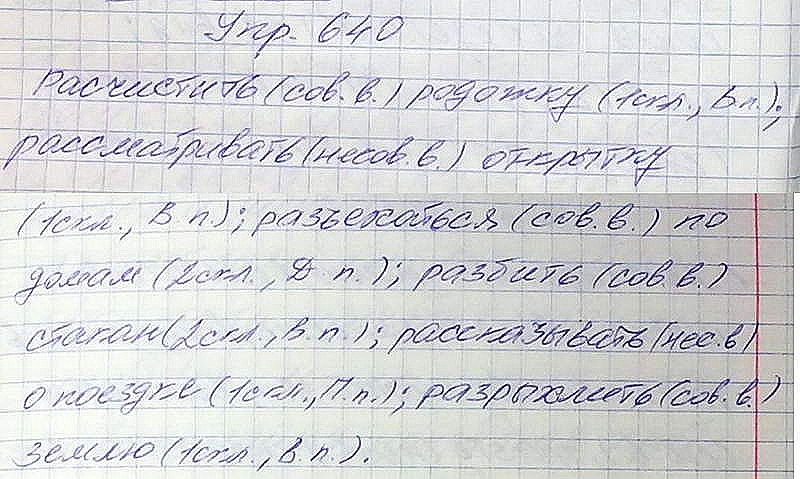 Упр. 640
Расчистить (сов. в.) родожку (1скл., В.п.);
рассматривать (несов. в.) открытку
(1скл., В. п.); разъехаться (сов. в.) по
домам (2скл., Д. п.); разбить (сов. в.)
стакан (2скл., В. п.); рассказывать (нес. в)
о поездке (1скл., П.п.); разрыхлить (сов. в.)
землю (1скл., В. п.).